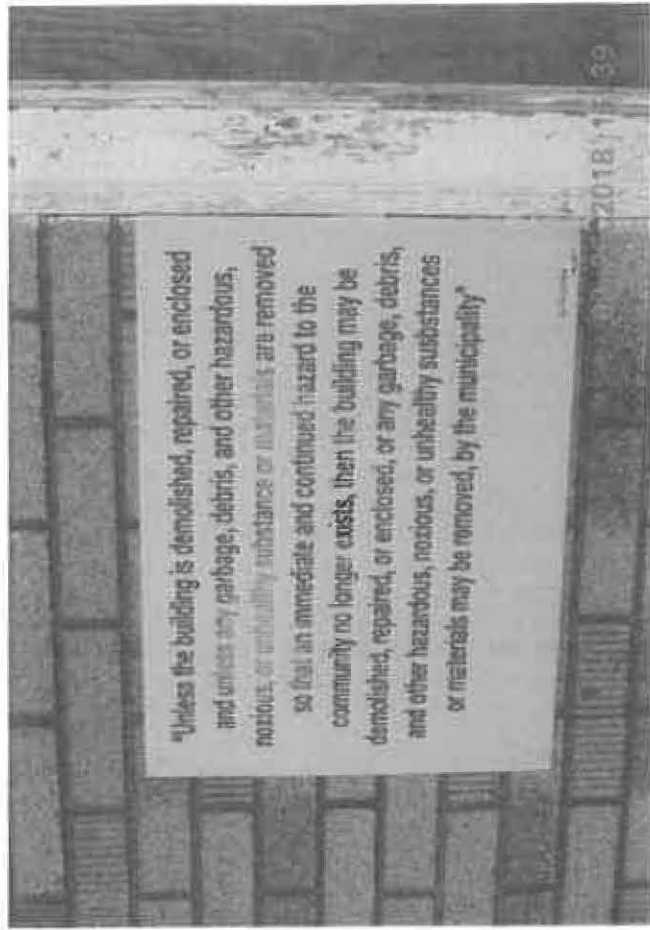 "Unless the building is demolished, repaired, or enclosed
and unless any garbage, debris, and other hazardous,
noxious, or unhealthy substance or materials are removed
so that an immediate and continued hazard to the
community no longer exists, then the building may be
demolished, repaired, or enclosed, or any garbage, debris,
and other hazardous, noxious, or unhealthy susbstances
or materials may be removed, by the municipality"
2018 | 15:39